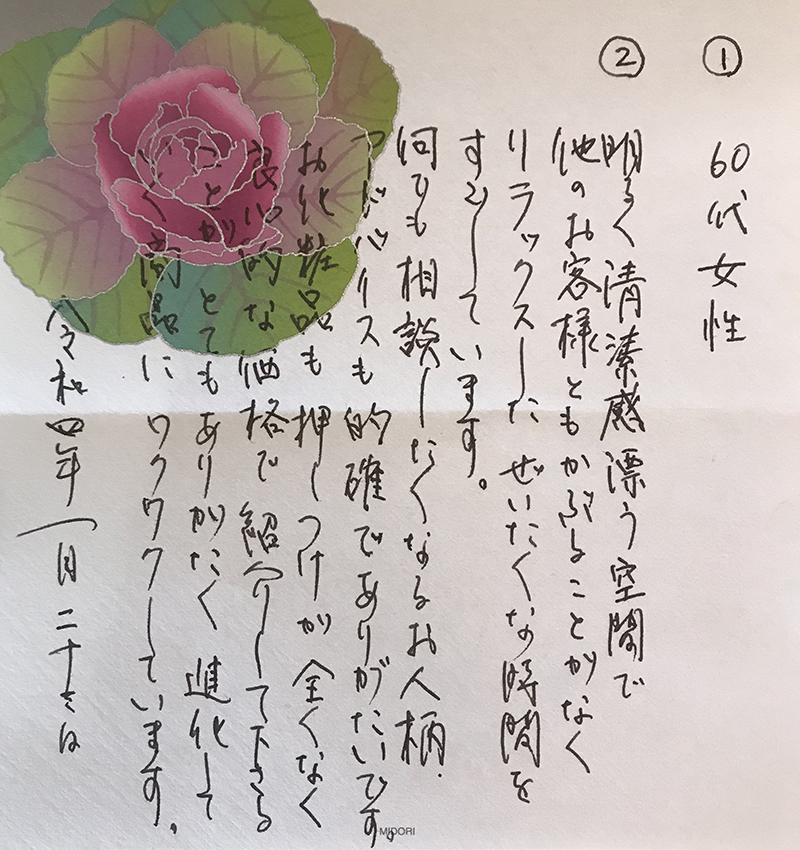 ① 60代女性
② 明るく清潔感漂う空間で
他のお客様ともかぶることがなく
リラックスしたぜいたくな時間を
すごしています。
何でも相談したくなるお人柄.
アドバイスも的確でありがたいです。
お化粧品も押しつけが全くなく
良心的な価格で紹介して下さる
ことがとてもありがたく進化して
いく商品にワクワクしています。
令和四年一月二十
MIDORI